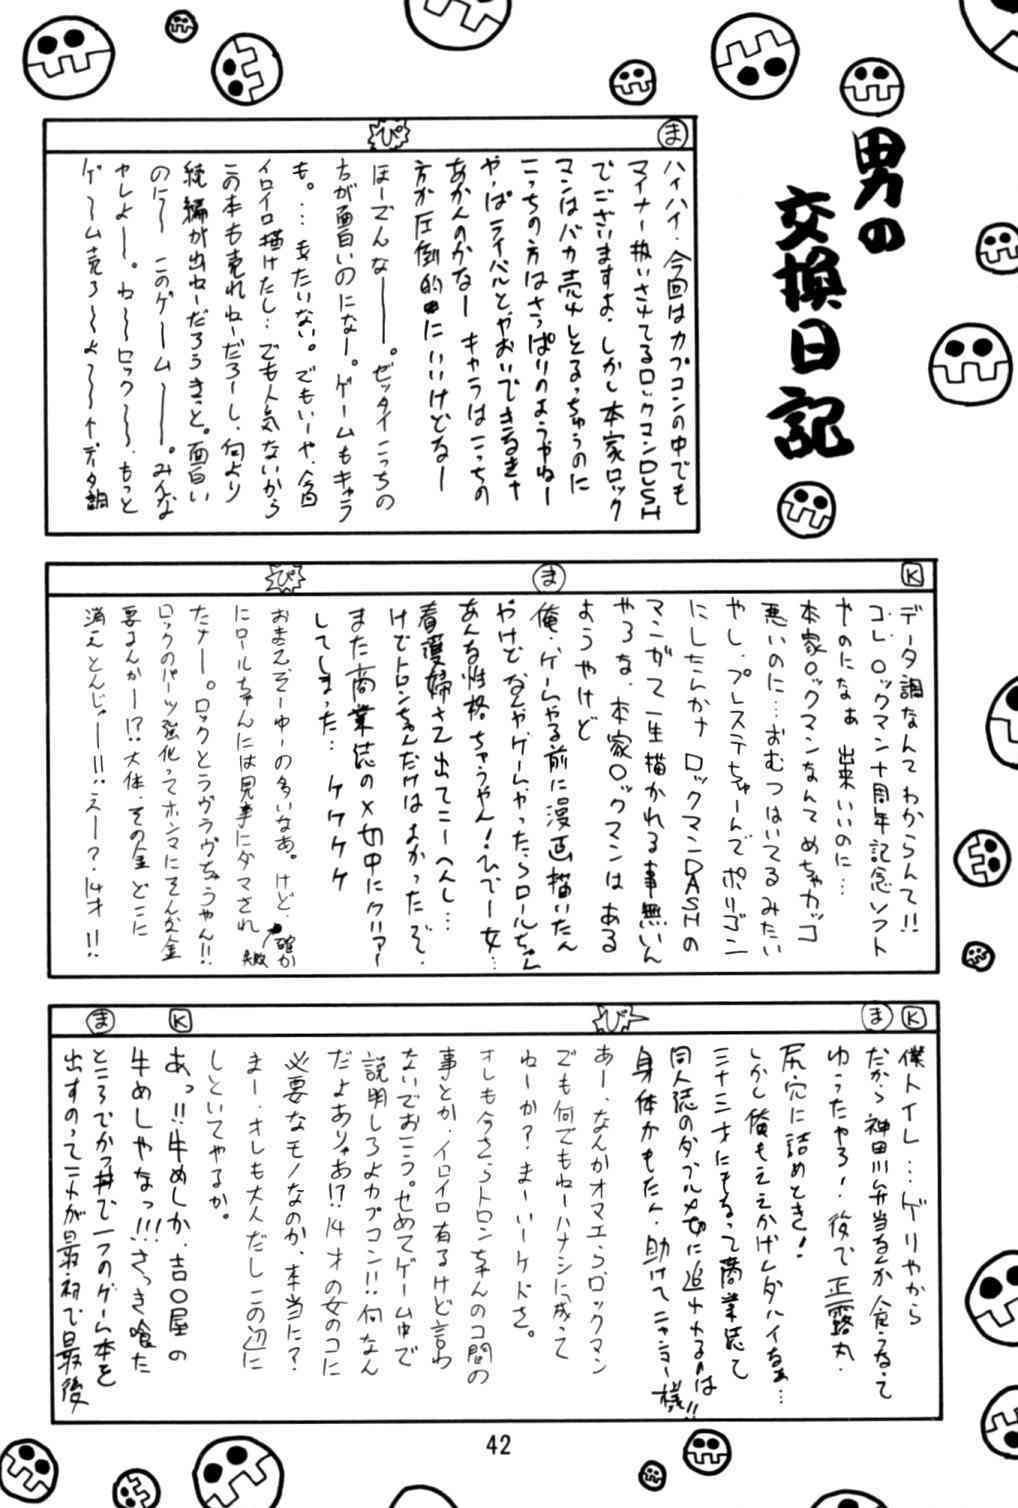 男の
交換日記
ま
ハイハイ、今回はカプコンの中でも
マイナー扱いされてるロックマンDASH
でございますよ。しかし本家ロック
マンはバカ売れしとるっちゅうのに
こっちの方はさっぱりのようやねー
やっぱライバルとやおいできるきゃ
あかんのかなー キャラはこっちの
方が圧倒的にいいけどなー
ぴ
ほーでんなー。ゼッタイこっちの
ちが面白いのになー。ゲームもキャラ
も。…もったいない。でもいーや、今回
イロイロ描けたし…でも人気ないから
この本も売れねーだろーし、何より
続編が出ねーだろうきっと。面白い
のにー このゲームー。みんな
やれよー。ね〜ロック〜、もっと
ゲ〜ム売ろ〜よ〜〜↑データ調
K
データ調なんてわからんて!!
コレ、ロックマン十周年記念ソフト
やのになぁ 出来いいのに…
本家ロックマンなんてめちゃカッコ
悪いのに…おむつはいてるみたい
やし、プレステちゃーんでポリゴン
にしたんかナ ロックマンDASHの
マンガて一生描かれる事無いん
やろな、本家ロックマンはある
ようやけど
ま
俺、ゲームやる前に漫画描いたん
やけどなんや、ゲームやったらロールちゃん
あんな性格ちゃうやん!ひでー女…
看護婦さん出てこーへんし…
けどトロンちゃんだけはよかったぞ、
また商業誌の〆切中にクリアー
してしまった… ケケケケ
ぴ
おまえそーゆーの多いなあ。けど、確か
にロールちゃんには見事にダマされ
たナー。ロックとラヴラヴちゃうやん!!
ロックのパーツ強化ってホンマにそんな金
要るんかー!?大体、その金どこに
消えとんじゃー!!えー?14才!!
K
僕トイレ…ゲリやから
ま
だから神田川弁当なんか食うなって
ゆったやろ!、後で正露丸、
尻穴に詰めとき!
しかし俺もええかげんダハイなぁ…
三十三才にもなって商業誌て
同人誌のダブル〆切に追われるのは!!
身体がもたん、助けてニャンコー様
ぴ
あー、なんかオマエらロックマン
でも何でもねーハナシに成って
ねーか?まーいーケドさ。
オレも今さらトロンちゃんのコ間の
事とか、イロイロ有るけど言わ
ないでおこう。せめてゲーム中で
説明しろよカプコン!!何なん
だよありゃあ!?14才の女のコに
必要なモノなのか、本当に?
まー、オレも大人だしこの辺に
しといてやるか。
K
あっ!!牛めしか、吉〇屋の
牛めしやなっ!!!さっき喰た
ま
ところでかつ丼で一つのゲーム本を
出すのってこれが最初で最後
42